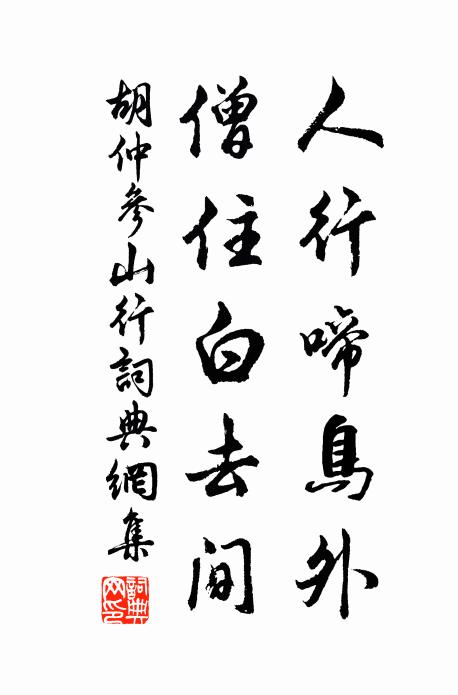 人行啼鳥外
僧住白去間
胡仲參山行詞典網集
詞典网印